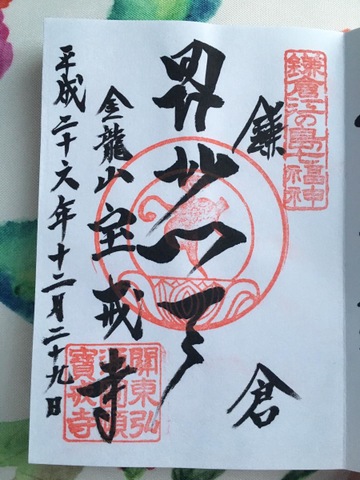 鎌倉江の島七福神
鎌倉
毘沙門天
金龍山宝戒寺
平成二十六年十二月二十九日
關東弘
寶戒寺